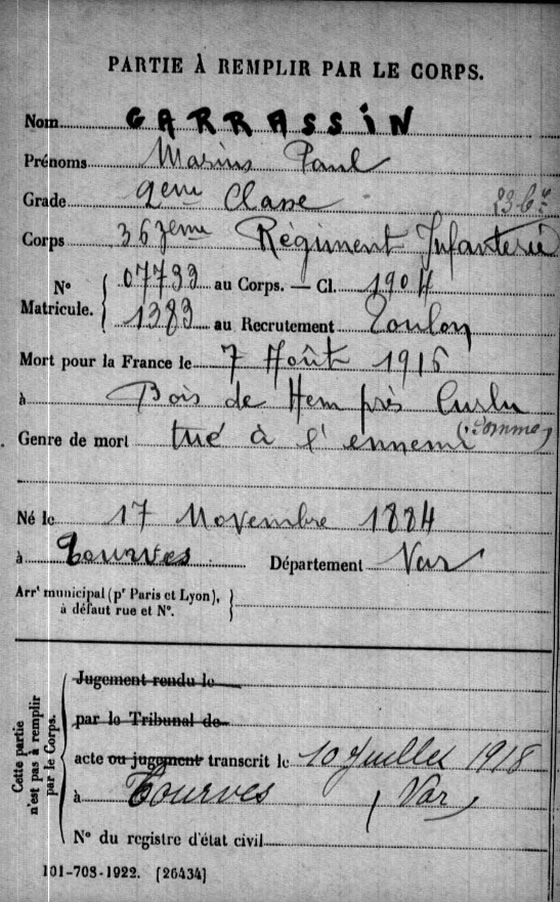 PARTIE À REMPLIR PAR LE CORPS.
Nom GARRASSIN
Prénoms Marius Paul
Grade 2ème Classe
Corps 363ème Régiment Infanterie
N° Matricule. 07733 au Corps. — Cl. 1904
1383 au Recrutement Toulon
Mort pour la France le 7 Août 1916
à Bois de Hem près Curlu
Genre de mort tué à l'ennemi (Somme)
Né le 17 Novembre 1884
à Tourves Département Var
Arrt municipal (pr Paris et Lyon),
à défaut rue et N°.
Cette partie n'est pas à remplir par le Corps.
Jugement rendu le
par le Tribunal de
acte ou jugement transcrit le 10 Juillet 1918
à Tourves (Var)
N° du registre d'état civil
101-708-1922. [26434]